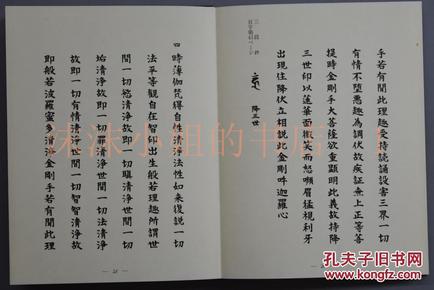 手若有聞此理趣受持讀誦設害三界一切
有情不墮惡趣為調伏故疾證無上正等菩
提時金剛手大菩薩欲重顯明此義故持降
三世印以蓮華面微笑而怒嚬眉猛視利牙
出現住降伏立相說此金剛吽迦羅心
降三世
三段鈔
四 時薄伽梵得自性清淨法性如來復說一切
法平等觀自在智印出生般若理趣所謂世
間一切慾清淨故即一切瞋清淨世間一切
垢清淨故即一切罪清淨世間一切法清淨
故即一切有情清淨世間一切智智清淨故
即般若波羅蜜多清淨金剛手若有聞此理
妹妹小姐的书店
孔夫子旧书网